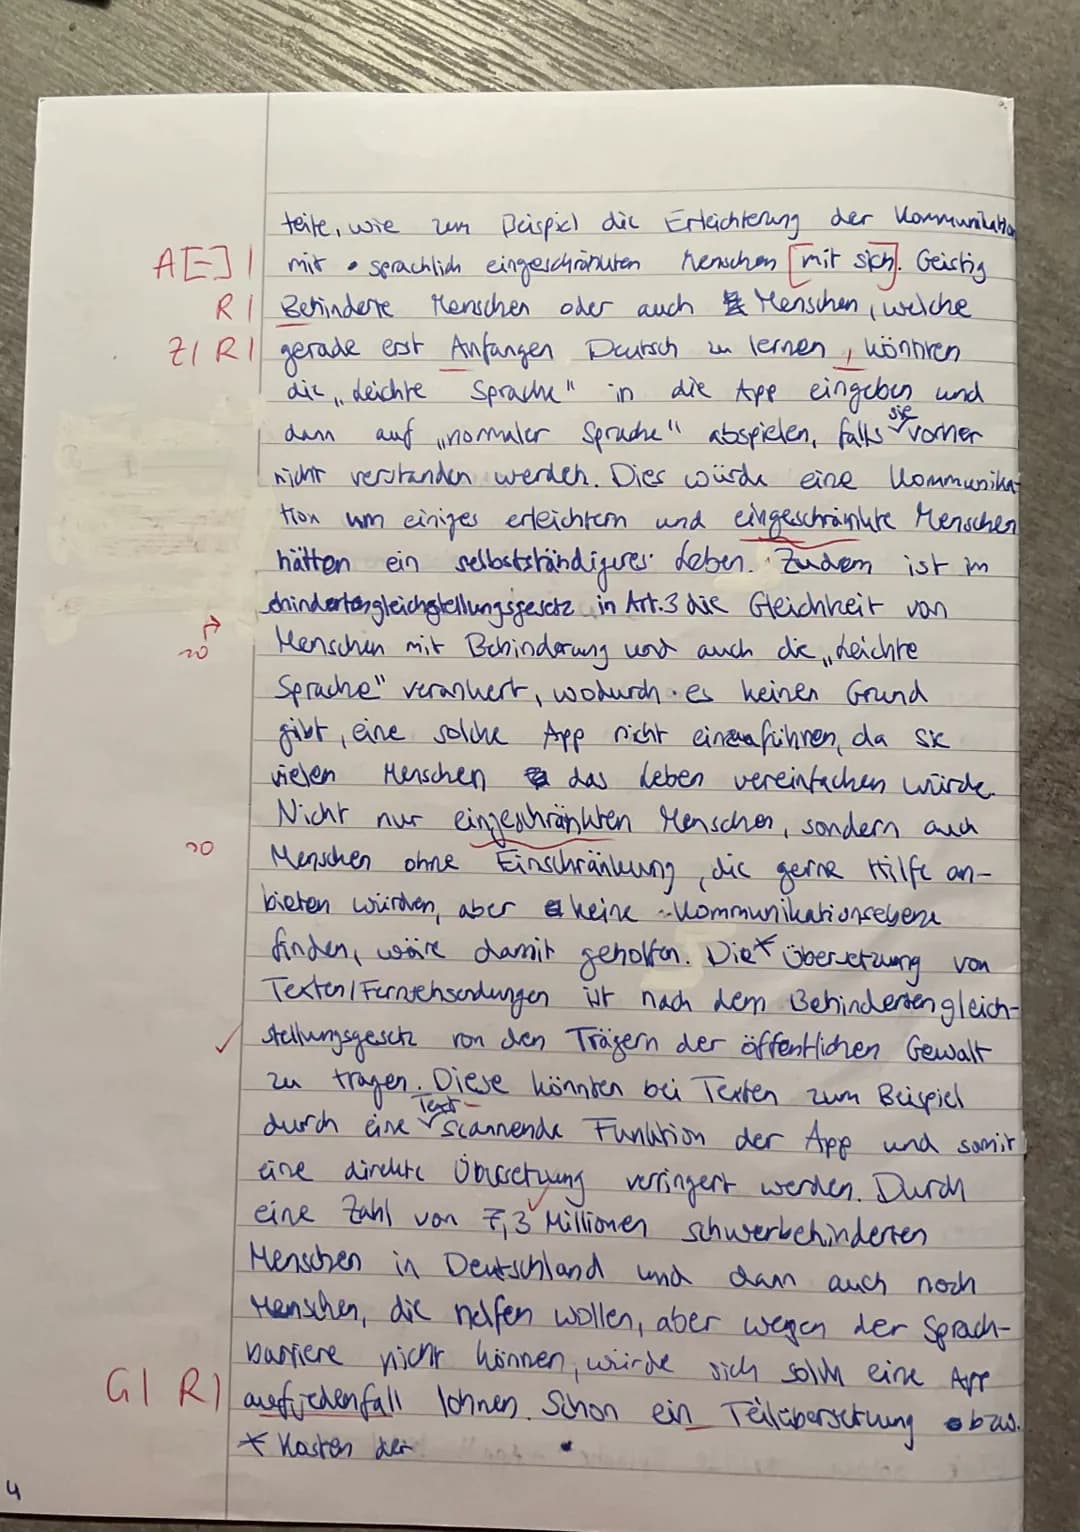 teile, wie zum Beispiel die Erleichterung der Kommunikation
A[-] | mit sprachlich eingeschränkten Menschen [mit sich]. Geistig
R | Behinderte Menschen oder auch Menschen, welche
Z | R | gerade erst Anfangen Deutsch zu lernen, könnten
die „Leichte Sprache" in die App eingeben und
dann auf „normaler Sprache" abspielen, falls sie vorher
nicht verstanden werden. Dies würde eine Kommunika-
tion um einiges erleichtern und eingeschränkte Menschen
hätten ein selbstständigeres Leben. Zudem ist im
ehindertengleichstellungsgesetz in Art.3 die Gleichheit von
Menschen mit Behinderung und auch die „Leichte
Sprache" verankert, wodurch es keinen Grund
gibt, eine solche App nicht einzuführen, da sie
vielen Menschen das Leben vereinfachen würde.
Nicht nur eingeschränkten Menschen, sondern auch
Menschen ohne Einschränkung, die gerne Hilfe an-
bieten würden, aber keine Kommunikationsebene
finden, wäre damit geholfen. Die* Übersetzung von
Texten/Fernsehsendungen ist nach dem Behindertengleich-
✓ stellungsgesetz von den Trägern der öffentlichen Gewalt
zu tragen. Diese könnten bei Texten zum Beispiel
durch eine Text-scannende Funktion der App und somit
eine direkte Übersetzung verringert werden. Durch
eine Zahl von 7,3 Millionen schwerbehinderten
Menschen in Deutschland und dann auch noch
Menschen, die helfen wollen, aber wegen der Sprach-
barriere nicht können, würde sich solch eine App
G | R | aufjedenfall lohnen. Schon ein Teilübersetzung bzw.
* Kosten der
4